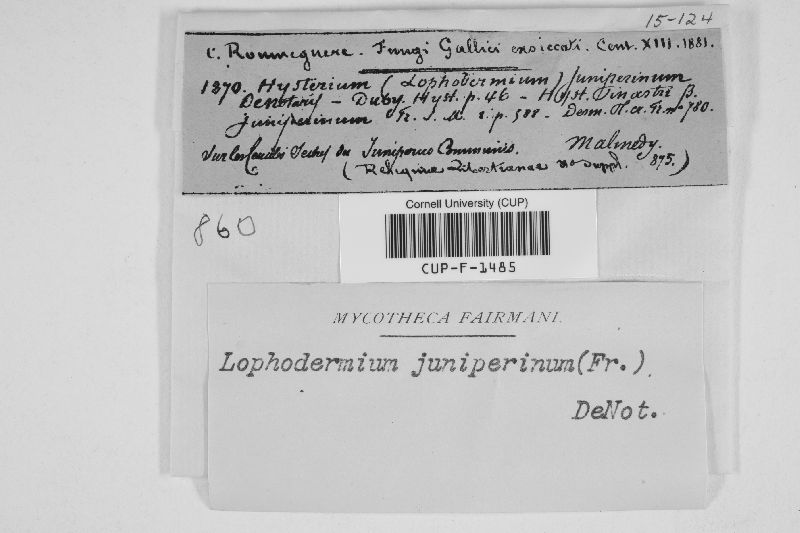 15-124
C. Roumeguere. Fungi Gallici exsiccati. Cent. XIII. 1881.
1270. Hysterium (Lophodermium) juniperinum
Denotaris - Duby. Hyst. p. 46 - Hyst. Pinastri β.
juniperinum Fr. S. M. 2. p. 588. Desm. Pl. cr. Fr. nº 780.
Sur les feuilles seches du Juniperus Communis. Malmedy.
(Reliquiae Libertianae suppl. 875.)
860
Cornell University (CUP)
CUP-F-1485
MYCOTHECA FAIRMANI.
Lophodermium juniperinum(Fr.)
DeNot.